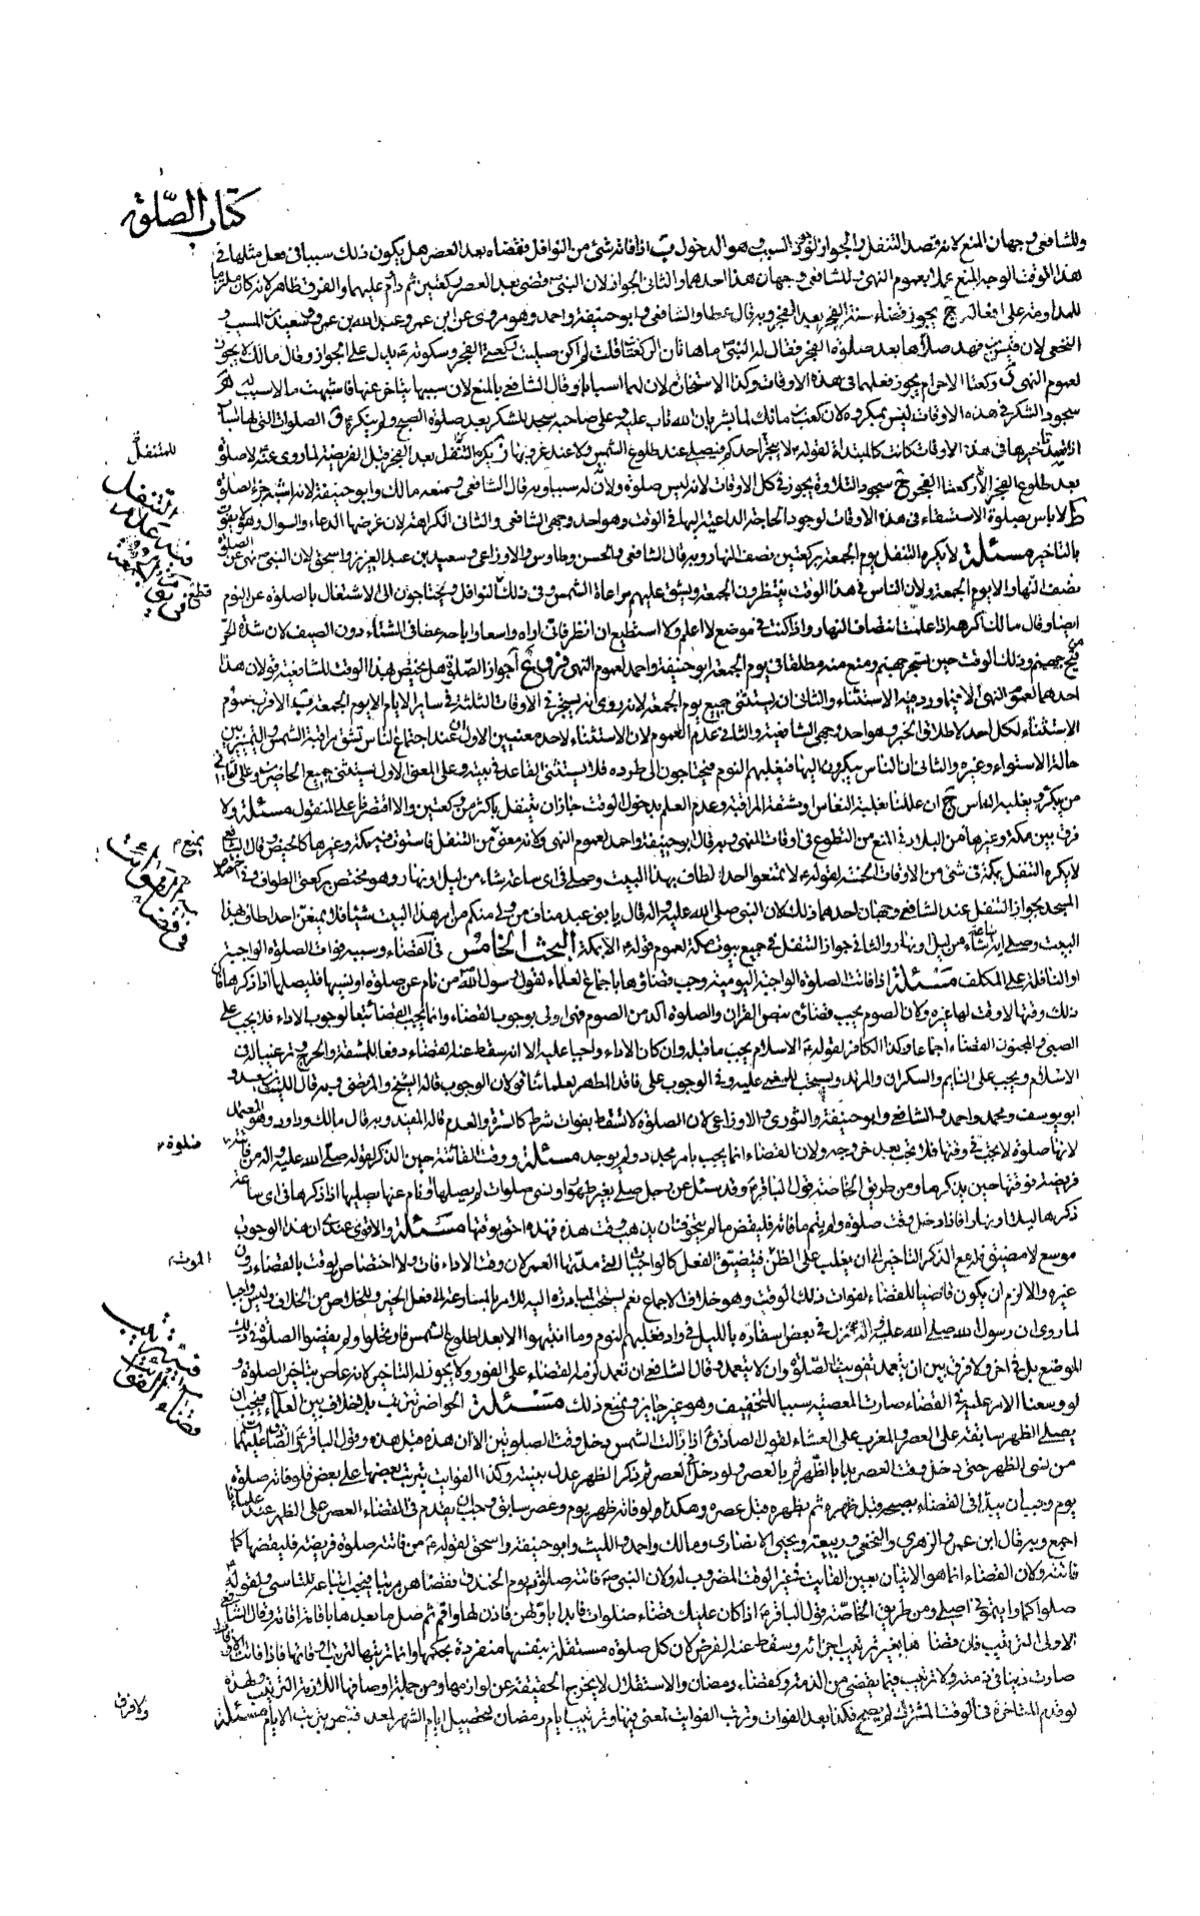 كتاب الصلوة
وللشافعي وجهان المنع لانه قصد التنفل والجواز لوجود السبب وهو الدخول ب اذا فاته شئ من النوافل فقضاه بعد العصر هل يكون ذلك سببا في فعل مثلها في
هذا الوقت الوجه المنع عملا بعموم النهي وللشافعي وجهان هذا احدهما والثاني الجواز لان النبي قضى بعد العصر ركعتين ثم داوم عليهما والفرق ظاهر لانه كان ملزما
للمداومة على افعاله ج يجوز قضاء سنة الفجر بعد الفجر وبه قال عطا والشافعي وابو حنيفة واحمد وهو مروي عن ابن عمر وعبد الله بن عمرو وسعيد بن المسيب و
النخعي لان قيس بن فهد صلاها بعد صلوة الفجر فقال له النبي ما هاتان الركعتان قلت لم اكن صليت ركعتي الفجر وسكوته يدل على الجواز وقال مالك لا يجوز
لعموم النهي د ركعتا الاحرام يجوز فعلهما في هذه الاوقات وكذا الاستخارة لان لهما اسبابا وقال الشافعي بالمنع لان سببها يتاخر عنها فاشبهت ما لا سبب له
سجود الشكر في هذه الاوقات ليس بمكروه لان كعب بن مالك لما بشر بان الله تاب عليه وعلى صاحبه سجد للشكر بعد صلوة الصبح ولم ينكر و الصلوات التي لها اسباب
اذا قصد تاخيرها في هذه الاوقات كانت كالمبتداة لقوله لا يتحر احدكم فيصلي عند طلوع الشمس ولا عند غروبها ز يكره التنفل بعد الفجر قبل الفريضة لما روي عنه لا صلوة
بعد طلوع الفجر الا ركعتا الفجر ح سجود التلاوة يجوز في كل الاوقات لانه ليس صلوة ولان له سببا وبه قال الشافعي ومنعه مالك وابو حنيفة لانه اشبه جزء الصلوة
ط لا باس بصلوة الاستسقاء في هذه الاوقات لوجود الحاضر الداعية اليها في الوقت وهو احد وجهي الشافعي والثاني الكراهة لان غرضها الدعاء والسوال وهو لا يفوت
بالتاخير مسئلة لا يكره التنفل يوم الجمعة بركعتين نصف النهار وبه قال الشافعي والحسن وطاوس والاوزاعي وسعيد بن عبد العزيز واسحق لان النبي نهى عن الصلوة
نصف النهار الا يوم الجمعة ولان الناس في هذا الوقت ينتظرون الجمعة ويشق عليهم مراعاة الشمس وفي ذلك النوافل ويحتاجون الى الاشتغال بالصلوة عن النوم
ايضا وقال مالك اكره هذا اذا علمت انتصاف النهار واذا كنت في موضع لا اعلم ولا استطيع ان انظر فاني اراه واسعا واباحه عطا في الشتاء دون الصيف لان شدة الحر
من فيح جهنم وذلك الوقت حين تسجر جهنم ومنع منه مطلقا في يوم الجمعة ابو حنيفة واحمد لعموم النهي فروع ا جواز الصلوة هل يختص بهذا الوقت للشافعية قولان هذا
احدهما لعموم النهي الا فيما ورد فيه الاستثناء والثاني ان يستثنى جميع يوم الجمعة لانه روي انه تسجر في الاوقات الثلثة في ساير الايام الا يوم الجمعة ب الاقرب عموم
الاستثناء لكل احد لاطلاق الخبر وهو احد وجهي الشافعية والثاني عدم العموم لان الاستثناء لاحد معنيين الاول ان عند اجتماع الناس تشق مراقبة الشمس والتمييز بين
حالة الاستواء وغيره والثاني ان الناس يبكرون اليها فيغلبهم النوم فيحتاجون الى طرده فلا يستثنى القاعد في بيته وعلى المعنى الاول يستثنى جميع الحاضرين وعلى الثاني
من يبكر ويغلبه النعاس ج ان عللنا بغلبة النعاس او مشقة المراقبة وعدم العلم بدخول الوقت جاز ان يتنفل باكثر من ركعتين والا اقتصر على المنقول مسئلة ولا
فرق بين مكة وغيرها من البلاد في المنع من التطوع في اوقات النهي وبه قال ابو حنيفة واحمد لعموم النهي ولانه معنى يمنع من التنفل فاستوت فيه مكة وغيرها كالحيض وقال الشافعي
لا يكره التنفل بمكة في شئ من الاوقات الخمسة لقوله لا تمنعوا احدا طاف بهذا البيت وصلى في اي ساعة شاء من ليل ونهار وهو مختص بركعتي الطواف وفي اختصاص
المسجد بجواز التنفل عند الشافعي وجهان احدهما ذلك لان النبي صلى الله عليه واله قال يا بني عبد مناف من ولي منكم من امر هذا البيت شيئا فلا يمنعن احدا طاف بهذا
البيت وصلى اية ساعة شاء من ليل او نهار والثاني جواز التنفل في جميع بيوت مكة لعموم قوله الا بمكة البحث الخامس في القضاء وسببه فوات الصلوة الواجبة
او النافلة على المكلف مسئلة اذا فاتت الصلوة الواجبة اليومية وجب قضاؤها باجماع العلماء لقول رسول الله من نام عن صلوة او نسيها فليصلها اذا ذكرها فان
ذلك وقتها لا وقت لها غيره وكان الصوم يجب قضاؤه بنص القران والصلوة اكد من الصوم فهي اولى بوجوب القضاء وانما يجب القضاء تبعا لوجوب الاداء فلا يجب على
الصبي والمجنون القضاء اجماعا وكذا الكافر لقوله الاسلام يجب ما قبله وان كان الاداء واجبا عليه الا انه سقط عنه القضاء دفعا للمشقة والحرج وترغيبا له في
الاسلام ويجب على النايم والسكران والمرتد ويستحب للمغمى عليه وفي الوجوب على فاقد الطهر بعد ما شا في لان الوجوب قاله الشيخ والمرتضى وبه قال الليث بن سعد و
ابو يوسف ومحمد واحمد والشافعي وابو حنيفة والثوري والاوزاعي لان الصلوة لا تسقط بفوات شرط كالسترة والعدم قاله المفيد وبه قال مالك وداود وهو المعتمد
لانها صلوة لا تجب في وقتها فلا تجب بعد خروجه ولان القضاء انما يجب بامر مجدد ولم يوجد مسئلة ووقت الفائتة حين الذكر لقوله صلى الله عليه واله من فاتته
فريضة فوقتها حين يذكرها ومن طريق الخاصة قول الباقر وقد سئل عن رجل صلى بغير طهور او نسي صلوات لم يصلها او نام عنها يصليها اذا ذكرها في اي ساعة
ذكرها ليلا او نهارا فاذا دخل وقت صلوة ولم يتم ما فاته فليقض ما لم يتخوف ان يذهب وقت هذه فهذه احق بوقتها مسئلة والاقوى عندي ان هذا الوجوب
موسع لا مضيق فله مع الذكر التاخير الى ان يغلب على الظن فيتضيق الفعل كالواجبات التي مدتها العمر لان وقت الاداء فات ولا اختصاص لوقت بالقضاء دون
غيره والا لزم ان يكون قاضيا للقضاء لفوات ذلك الوقت وهو خلاف الاجماع نعم يستحب المبادرة اليه للامر بالمسارعة الى فعل الخير وللخلاص من الخلاف وليس واجبا
لما روي ان رسول الله صلى الله عليه واله نزل في بعض اسفاره بالليل في واد فغلبهم النوم وما انتبهوا الا بعد طلوع الشمس فارتحلوا ولم يقضوا الصلوة في ذلك
الموضع بل في اخر ولا فرق بين ان يتعمد تفويت الصلوة وان لا يتعمد وقال الشافعي ان تعمد لزمه القضاء على الفور ولا يجوز له التاخير لانه عاص بتاخير الصلوة و
لو وسعنا الامر عليه في القضاء صارت المعصية سببا للتخفيف وهو غير جايز ونمنع ذلك مسئلة الحواضر تترتب بلا خلاف بين العلماء فيجب ان
يصلي الظهر سابقة على العصر والمغرب على العشاء لقول الصادق اذا زالت الشمس دخل وقت الصلوتين الا ان هذه قبل هذه وقول الباقر
من نسي الظهر حتى دخل وقت العصر يبدا بالظهر ثم بالعصر ولو دخل في العصر ثم ذكر الظهر عدل بنيته وكذا الفوايت يترتب بعضها على بعض فلو فاته صلوة
يوم وجب ان يبدا في القضاء بصبحه قبل ظهره ثم بظهره قبل عصره وهكذا ولو فاته ظهر يوم وعصر سابق وجب ان يقدم في القضاء العصر على الظهر عند علمائنا
اجمع وبه قال ابن عمر والزهري والنخعي وربيعة ويحيى الانصاري ومالك واحمد والليث وابو حنيفة واسحق لقوله من فاتته صلوة فريضة فليقضها كما
فاتته ولان القضاء انما هو الاتيان بعين الفايت في غير الوقت المضروب له ولان النبي فاتته صلوة يوم الخندق فقضاهن مرتبا فيجب اتباعه للتاسي ولقوله
صلوا كما رايتموني اصلي ومن طريق الخاصة قول الباقر اذا كان عليك قضاء صلوات فابدا باولهن فاذن لها واقم ثم صل ما بعدها باقامة اقامة وقال الشافعي
الاولى الترتيب فان قضاها بغير ترتيب اجزائه وسقط عنه الفرض لان كل صلوة مستقلة بنفسها منفردة بحكمها وانما ترتيبها لترتيب اوقاتها فاذا فاتت الاوقات
صارت دينا في ذمته ولا ترتيب فيما يقضى من الذمة وكقضاء رمضان والاستقلال لا يخرج الحقيقة عن لوازمها ومن جملة اوصافها اللازمة الترتيب ولهذه
لو قدم المتاخرة في الوقت المشترك لم يصح فكذا بعد الفوات وترتب الفوايت لمعنى فيها وترتيب ايام رمضان لتحصيل ايام الشهر لا بعد فيه ترتيب الايام مسئلة
للمتنفل
قطع
يمنع
صلوة
الموت
ولا فرق